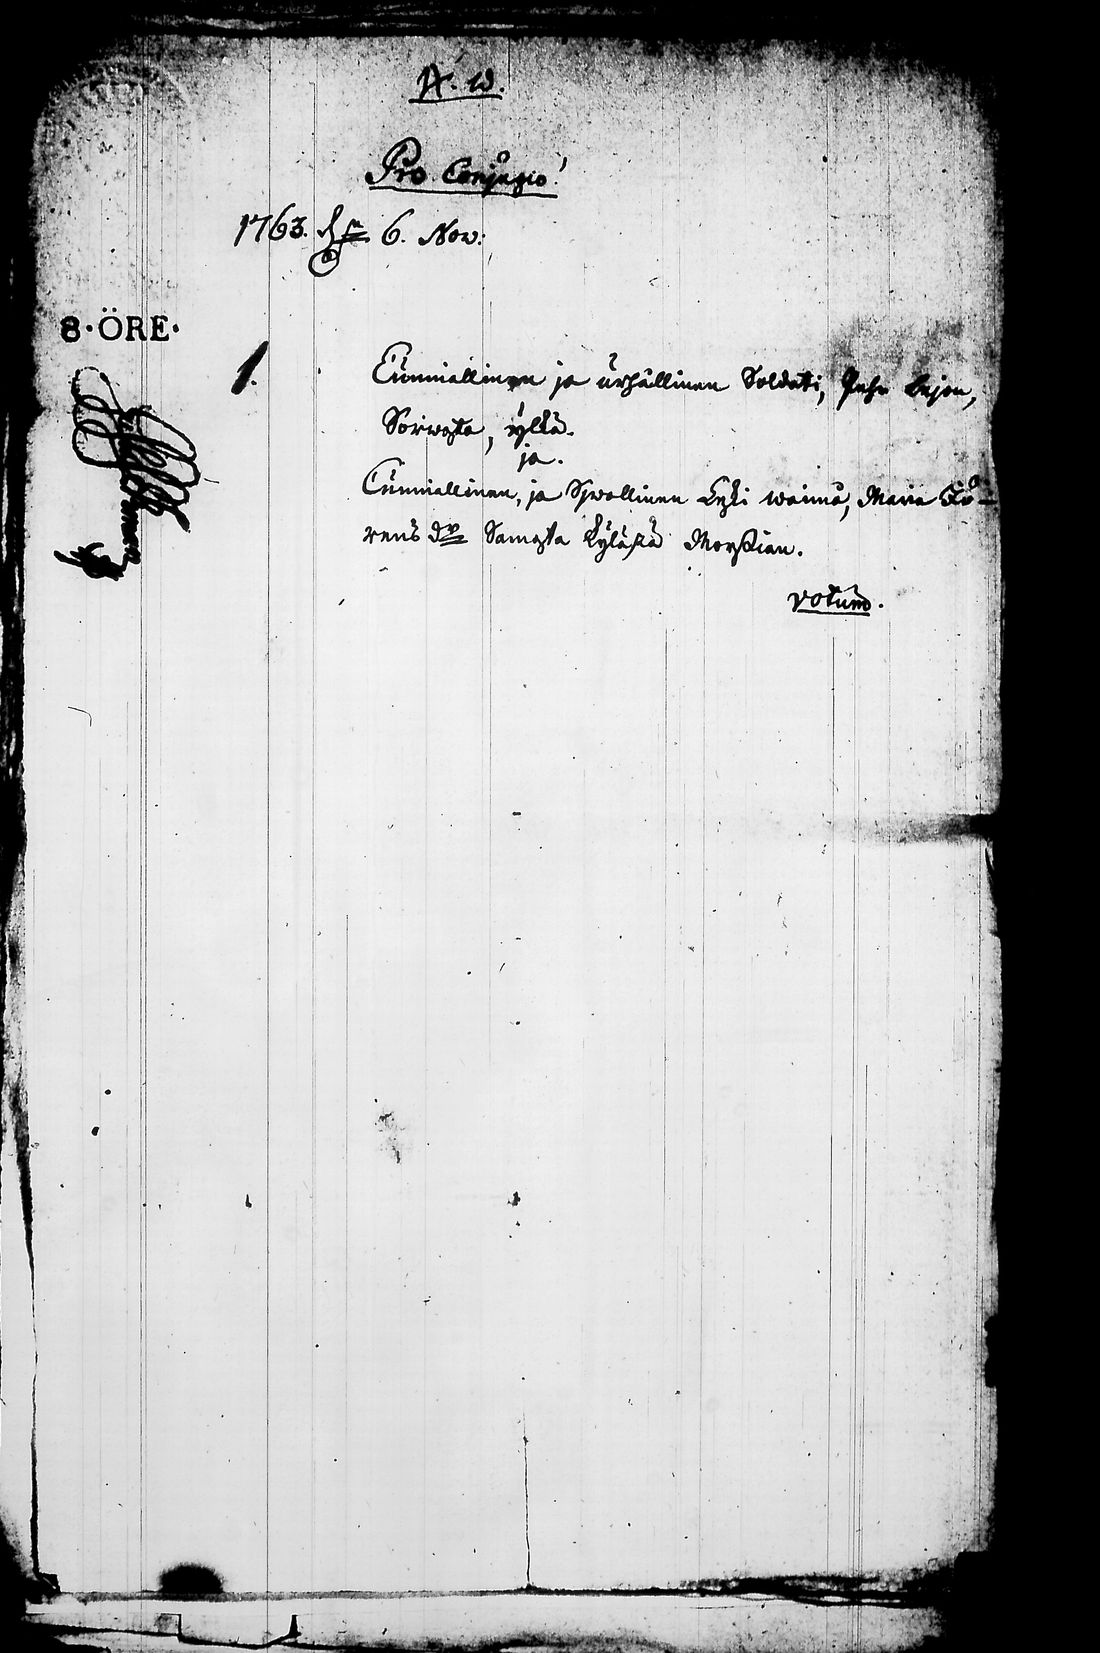 A. W.
Pro Conjugio!
1763. d. 6. Nov:
8·ÖRE·
1.
Cunniallinen ja urhållinen Soldati, Pehr Lejon,
Sorwasta, ylkä.
ja.
Cunniallinen, ja Siwollinen Leski waimo, Maria Jö-
rens dr Samasta kylästä Morsian.
votum.